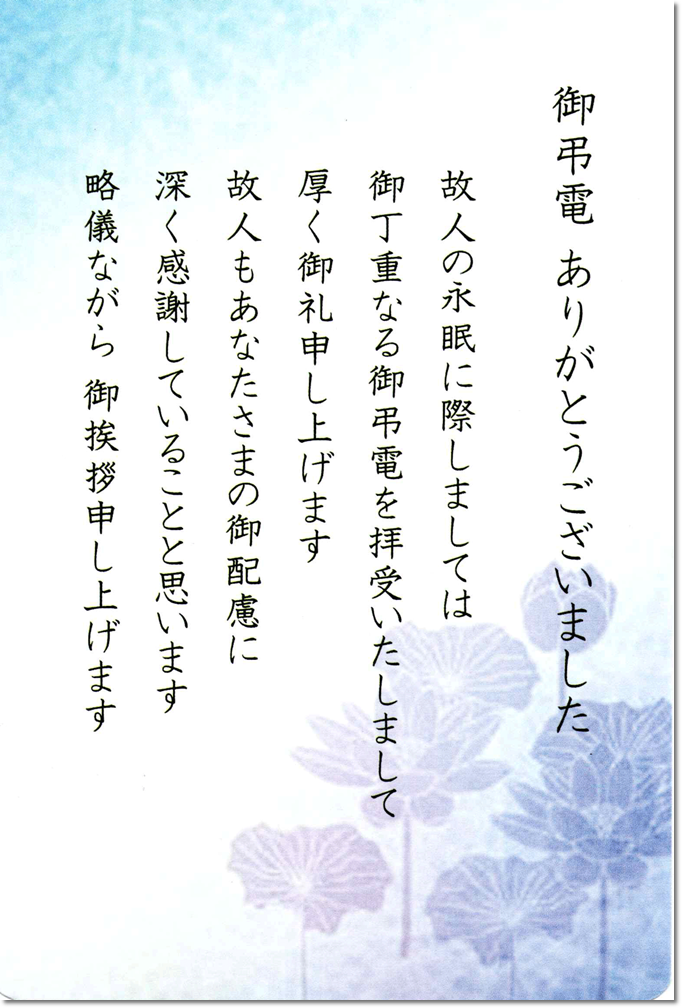 御弔電 ありがとうございました
故人の永眠に際しましては
御丁重なる御弔電を拝受いたしまして
厚く御礼申し上げます
故人もあなたさまの御配慮に
深く感謝していることと思います
略儀ながら 御挨拶申し上げます